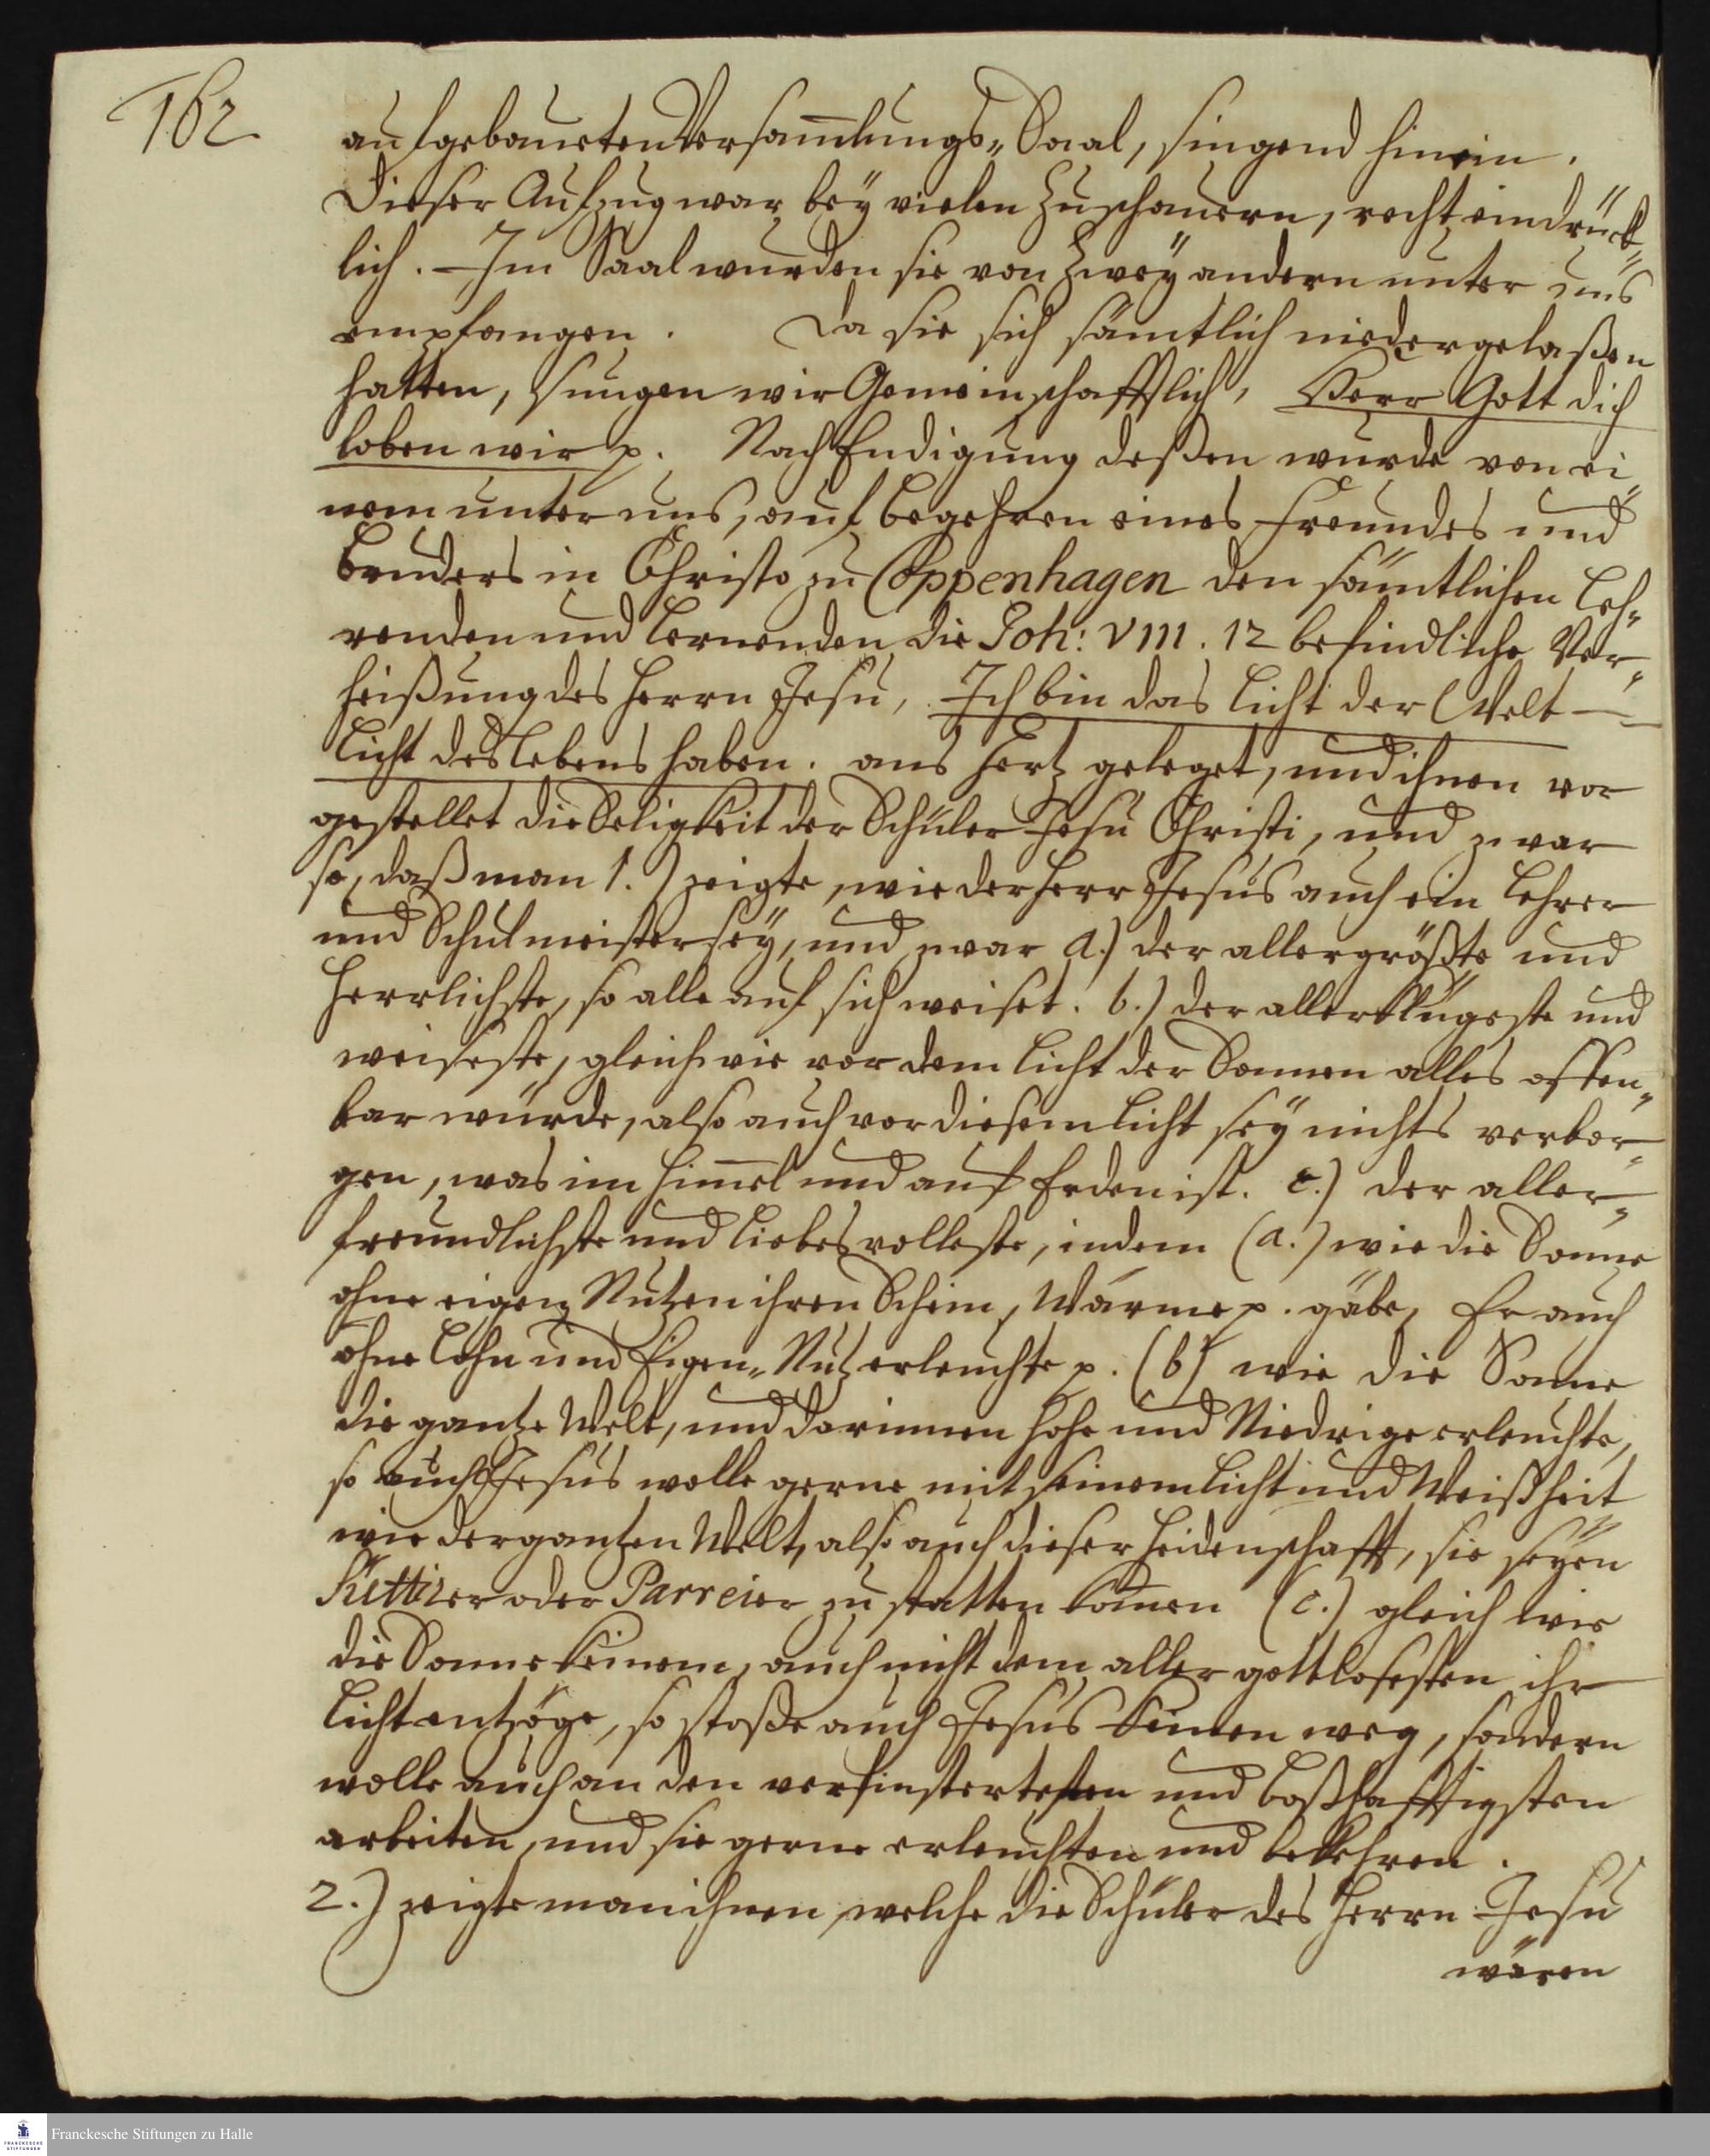 162
aufgebaueten Versam̅lungs-Saal, singend hinein.
Dieser Aufzug war bey vielen Zuschauern, recht eindrück-
lich. – Im Saal wurden sie von Zwey andern unter uns
empfangen. Da sie sich sämtlich niedergelaßen
hatten, sungen wir Gemeinschafftlich, Herr Gott dich
loben wir p. Nach Endigung deßen wurde von ei-
nem unter uns, auf begehren eines Freundes und
Bruders in Christo zu Coppenhagen den sämtlichen Leh-
renden und Lernenden die Joh: VIII. 12 befindliche Ver-
heißung des Herrn Jesu, Ich bin das Licht der Welt –
Licht des Lebens haben. ans Hertz geleget, und ihnen vor
gestellet die Seligkeit der Schüler Jesu Christi, und zwar
so, daß man 1.) zeigte, wie der Herr Jesus auch ein Lehrer
und Schulmeister sey, und zwar a.) der allergrößte und
Herrlichste, so alle auf sich weiset. b.) der allerklügeste und
weiseste, gleichwie vor dem Licht der Sonnen alles offen-
bar würde, also auch vor diesem Licht sey nichts verbor-
gen, was im Him̅el und auf Erden ist. c.) der aller-
freundlichste und liebesvolleste, indem (a.) wie die Sonne
ohne eigen Nutzen ihren Schein, Wärme p. gäbe, Er auch
ohne Lohn und Eigen-Nutz erleuchte p. (b) wie die Sonne
die gantze Welt, und darinnen Hohe und Niedrige erleuchte,
so auch Jesus wolle gerne mit seinem Licht und Weißheit
wie der gantzen Welt, also auch dieser Heidenschafft, sie seyen
Suttirer oder Parreier zu statten kom̅en (c.) gleich wie
die Sonne keinem, auch nicht dem aller gottlosesten ihr
Licht entzöge, so stoße auch Jesus keinen weg, sondern
wolle auch an den verfinstertesten und boßhafftigsten
arbeiten, und sie gerne erleuchten und bekehren.
2.) zeigte man ihnen, welche die Schüler des Herrn Jesu
wären
Franckesche Stiftungen zu Halle